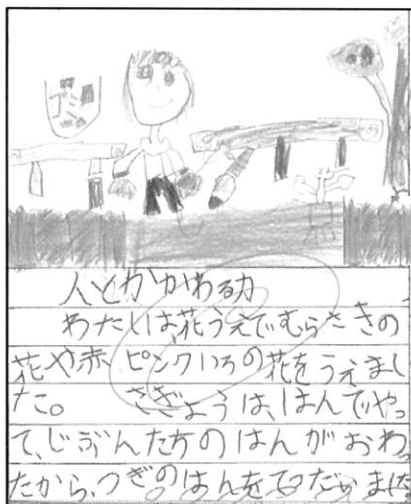 人とかかわる力
わたしは花うえでむらさきの
花や赤ピンクいろの花をうえまし
た。さぎょうは、はんでやっ
て、じぶんたちのはんがおわっ
たから、つぎのはんをてつだいました